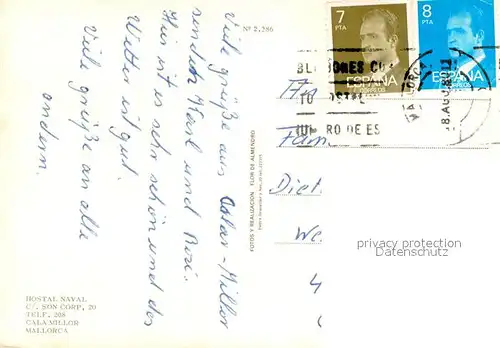 Nº 2.286
Viele grüße aus Calar-Millor
senden Karl und Rosi.
Hier ist es sehr schön und das
Wetter ist gut.
Viele grüße an alle
andern.
HOSTAL NAVAL
C/. SON CORP, 20
TELF. 268
CALA MILLOR
MALLORCA
FOTOS Y REALIZACION FLOR DE ALMENDRO
7
PTA
ESPAÑA
CORREOS
8
PTA
ESPAÑA
CORREOS
Fam
Diet
We
4
privacy protection
Datenschutz